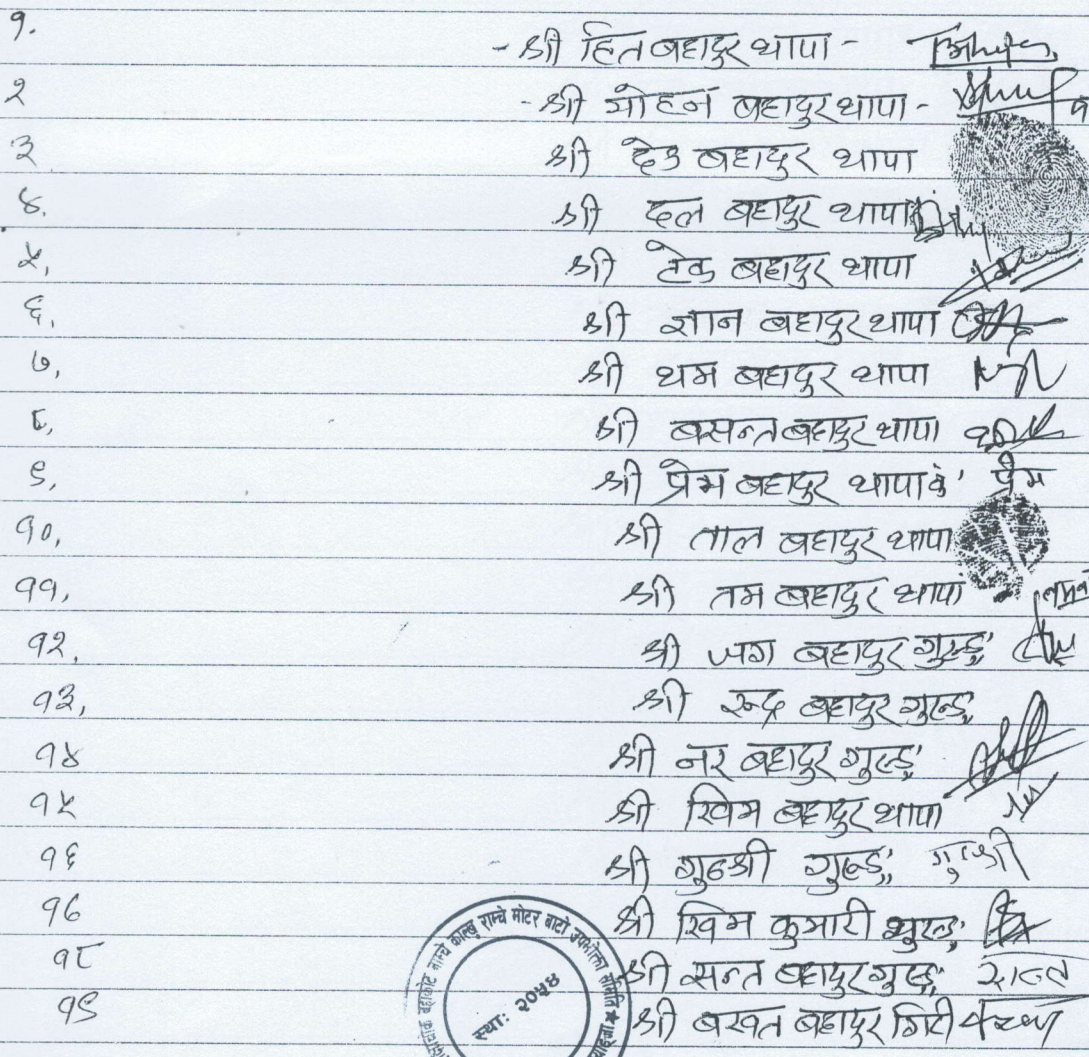 १. - श्री हित बहादुर थापा -
२ - श्री मोहन बहादुर थापा -
३ श्री देउ बहादुर थापा
४. श्री दल बहादुर थापा
५. श्री टेक बहादुर थापा
६. श्री ज्ञान बहादुर थापा
७. श्री थम बहादुर थापा
८. श्री बसन्त बहादुर थापा
९. श्री प्रेम बहादुर थापा के' प्रेम
१०. श्री ताल बहादुर थापा
११. श्री तम बहादुर थापा
१२. श्री जग बहादुर गुरुङ
१३. श्री रुद्र बहादुर गुरुङ
१४ श्री नर बहादुर गुरुङ
१५ श्री खिम बहादुर थापा
१६ श्री गुरुश्री गुरुङ गुरुश्री
१७ श्री खिम कुमारी गुरुङ
१८ श्री सन्त बहादुर गुरुङ
१९ श्री बखत बहादुर गिरी
राम्चे काल्बु राम्चे मोटर बाटो उपभोक्ता समिति
स्था: २०५४